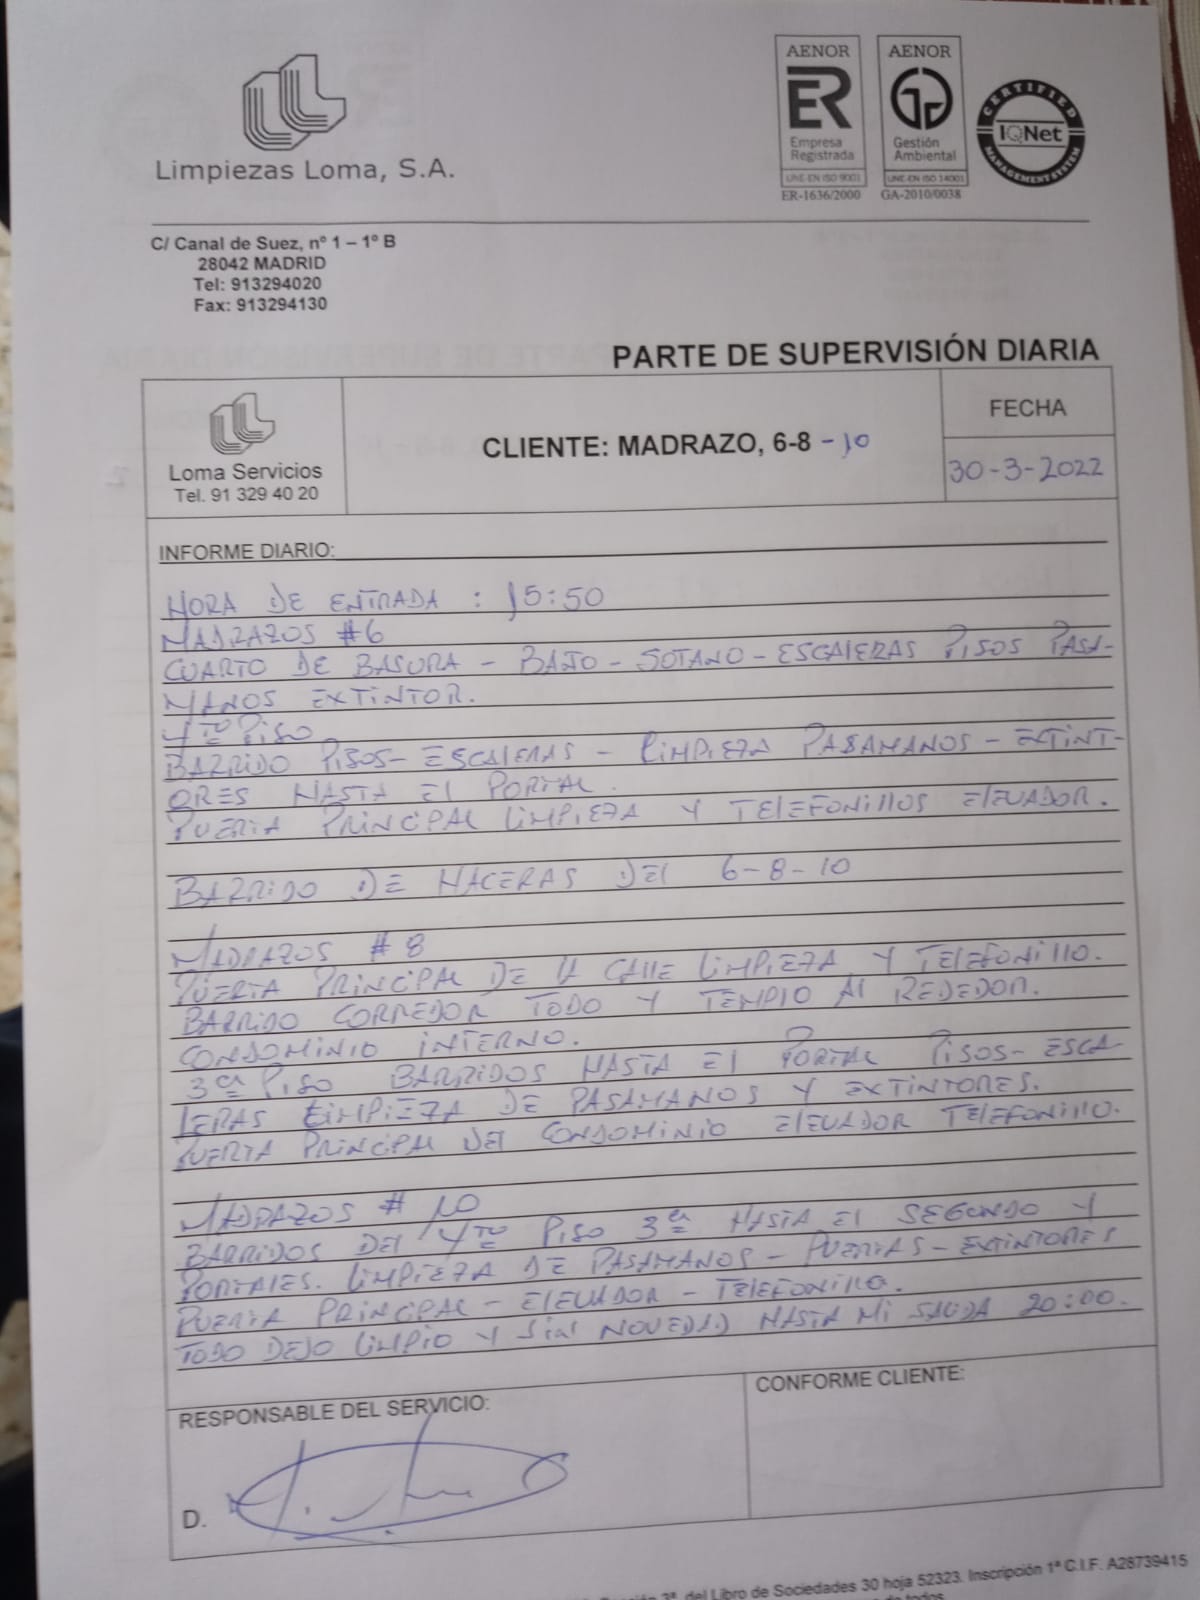 Limpiezas Loma, S.A.
AENOR
ER
Empresa
Registrada
UNE-EN ISO 9001
ER-1636/2000
AENOR
Gestión
Ambiental
UNE-EN ISO 14001
GA-2010/0038
CERTIFIED
IQNet
MANAGEMENT SYSTEM
C/ Canal de Suez, nº 1 – 1º B
28042 MADRID
Tel: 913294020
Fax: 913294130
PARTE DE SUPERVISIÓN DIARIA
Loma Servicios
Tel. 91 329 40 20
CLIENTE: MADRAZO, 6-8 - 10
FECHA
30-3-2022
INFORME DIARIO:
HORA DE ENTRADA : 15:50
MADRAZOS #6
CUARTO DE BASURA - BAJO - SOTANO - ESCALERAS PISOS PASA-
MANOS EXTINTOR.
4to PISO
BARRIDO PISOS - ESCALERAS - LIMPIEZA PASAMANOS - EXTINT-
ORES HASTA El PORTAL.
PUERTA PRINCIPAL LIMPIEZA Y TELEFONILLOS ELEVADOR.
BARRIDO DE HACERAS DEl 6-8-10
MADRAZOS # 8
PUERTA PRINCIPAL DE LA CALLE LIMPIEZA Y TELEFONILLO.
BARRIDO CORREDOR TODO Y TEMPLO Al REDEDOR.
CONDOMINIO INTERNO.
3ER PISO BARRIDOS HASTA El PORTAL PISOS - ESCA-
LERAS LIMPIEZA DE PASAMANOS Y EXTINTORES.
PUERTA PRINCIPAL DEl CONDOMINIO ELEVADOR TELEFONILLO.
MADRAZOS # 10
BARRIDOS DEl 4to PISO 3ER HASTA El SEGUNDO Y
PORTALES. LIMPIEZA DE PASAMANOS - PUERTAS - EXTINTORES
PUERTA PRINCIPAL - ELEVADOR - TELEFONILLO.
TODO DEJO LIMPIO Y SIN NOVEDAD HASTA MI SALIDA 20:00.
RESPONSABLE DEL SERVICIO:
CONFORME CLIENTE:
D.
del Libro de Sociedades 30 hoja 52323. Inscripción 1ª C.I.F. A28739415